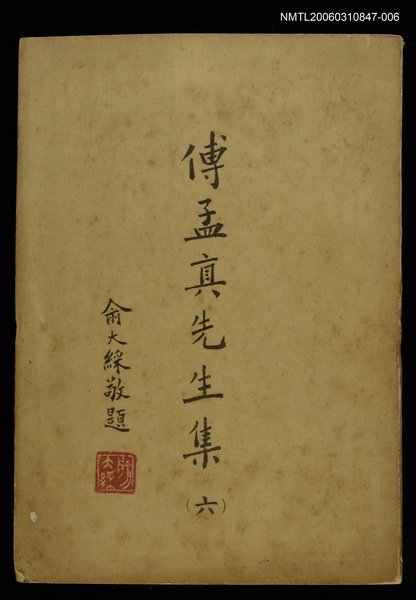 NMTL20060310847-006
傅孟真先生集
(六)
俞大綵敬題
俞大綵